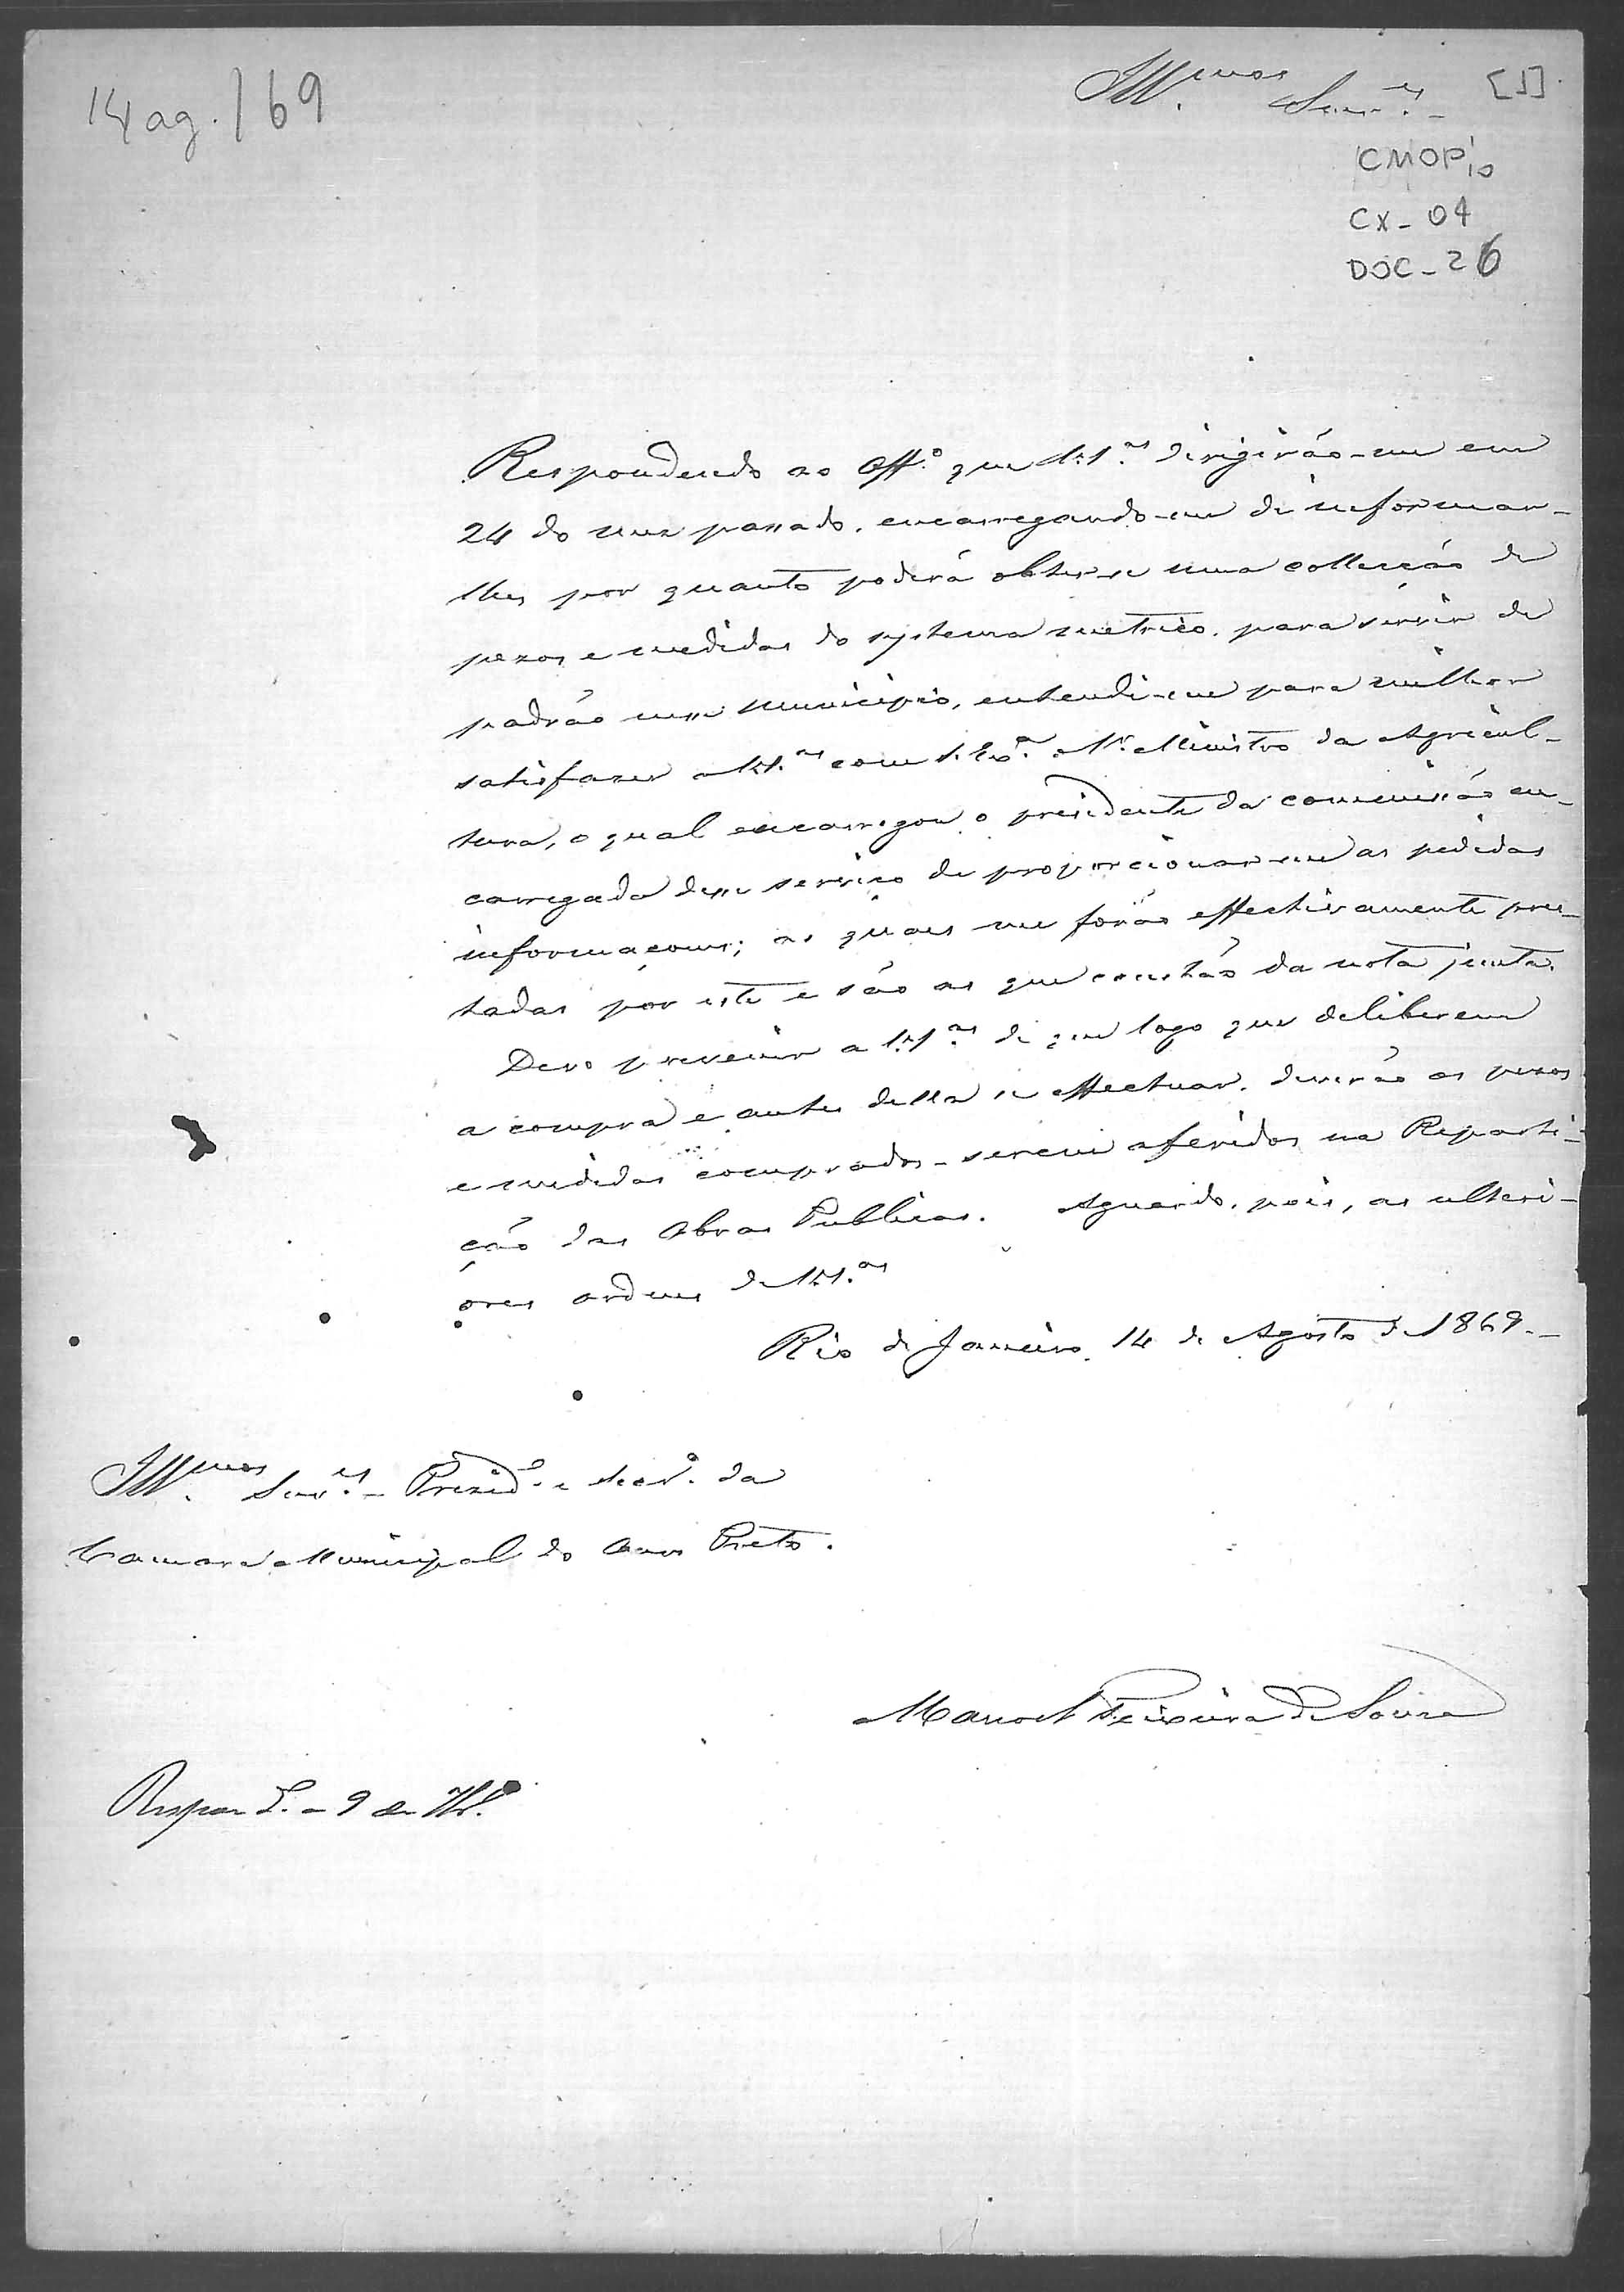 14 ag. / 69
Ill.mos Senr.es
[1]
CMOP
CX - 04
DOC - 26
Respondendo ao Off.º que V.S.as dirigirão-me em
24 do mez passado, encarregando-me de informar-
lhes por quanto poderá obter-se uma collecção de
pezos e medidas do systema metrico, para servir de
padrão nesse Municipio, entendi-me para milhor
satisfazer a V.S.as com S. Ex.ª o Sr. Ministro da Agricul-
tura, o qual encarregou o presidente da commissão en-
carregada desse serviço de proporcionar-me as pedidas
informaçoens; as quaes me forão effectivamente pres-
tadas por este e são as que constão da nota junta.
Devo prevenir a V.S.as de que logo que deliberem
a compra e antes della se effectuar, deverão os pezos
e medidas comprados - serem aferidos na Reparti-
ção das Obras Publicas. Aguardo, pois, as ulteri-
ores ordens de V.S.as
Rio de Janeiro, 14 de Agosto de 1869. -
Ill.mos Senr.es - Prezid.e e Secr.º da
Camara Municipal do Ouro Preto.
Manoel Teixeira de Souza
9 de